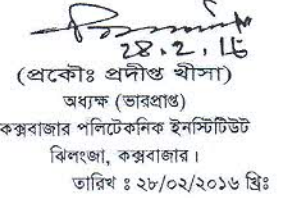 28.2.16
(প্রকৌঃ প্রদীপ্ত খীসা)
অধ্যক্ষ (ভারপ্রাপ্ত)
কক্সবাজার পলিটেকনিক ইনস্টিটিউট
ঝিলংজা, কক্সবাজার।
তারিখ ঃ ২৮/০২/২০১৬ খ্রিঃ